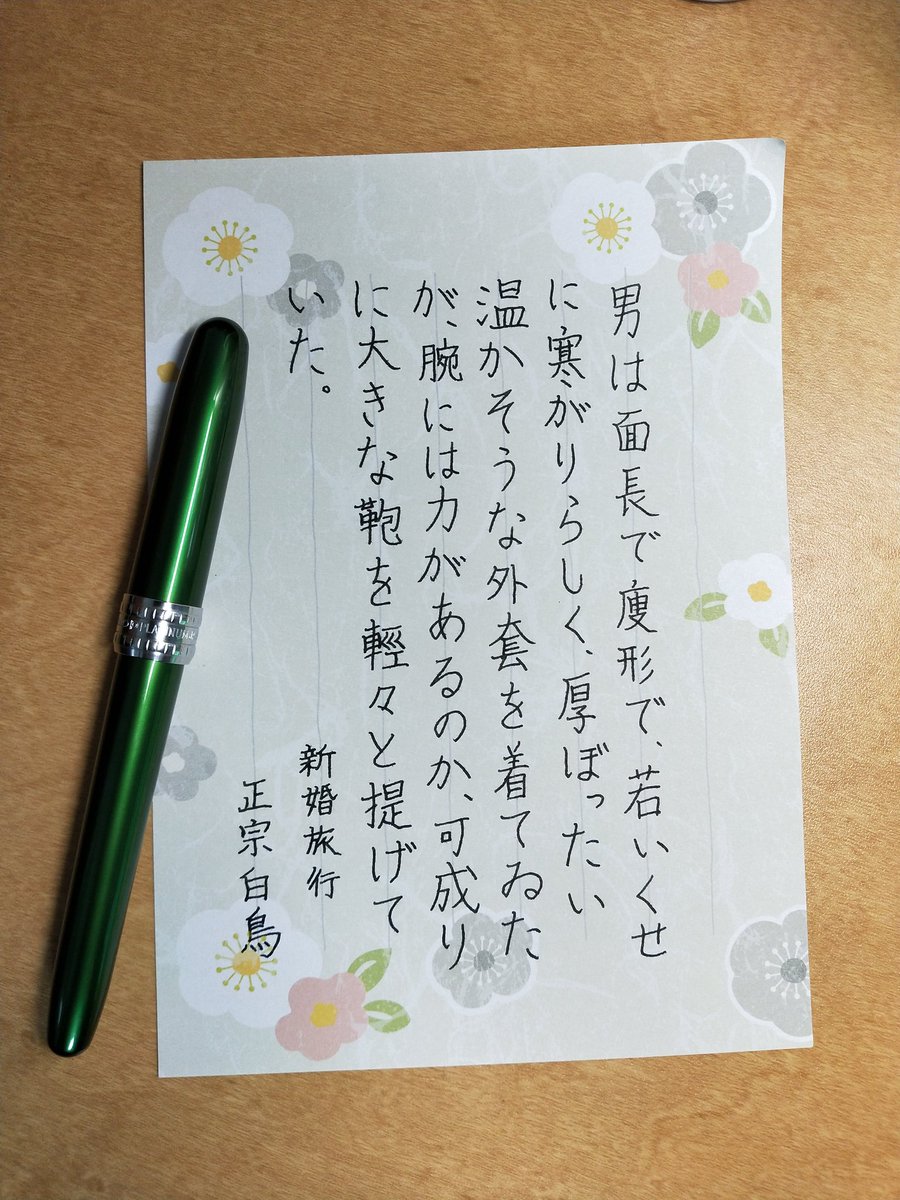 男は面長で痩形で、若いくせ
に寒がりらしく、厚ぼったい
温かそうな外套を着てゐた
が、腕には力があるのか、可成り
に大きな鞄を輕々と提げて
いた。
新婚旅行
正宗白鳥
PLATINUM